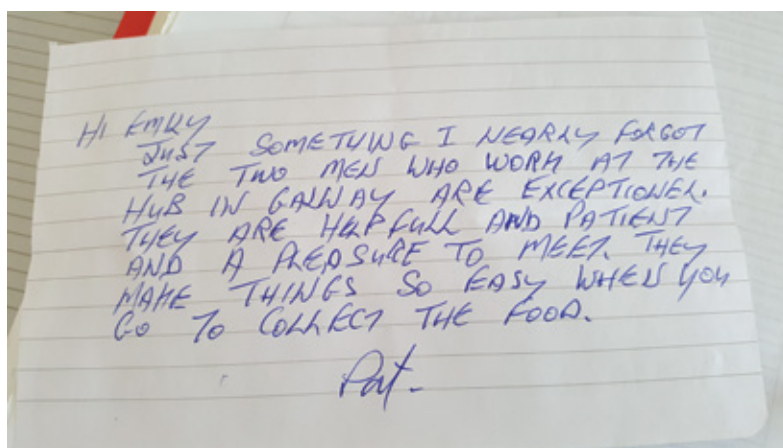 HI EMILY
JUST SOMETHING I NEARLY FORGOT
THE TWO MEN WHO WORK AT THE
HUB IN GALWAY ARE EXCEPTIONEL.
THEY ARE HELPFULL AND PATIENT
AND A PLEASURE TO MEET. THEY
MAKE THINGS SO EASY WHEN YOU
GO TO COLLECT THE FOOD.
Pat.